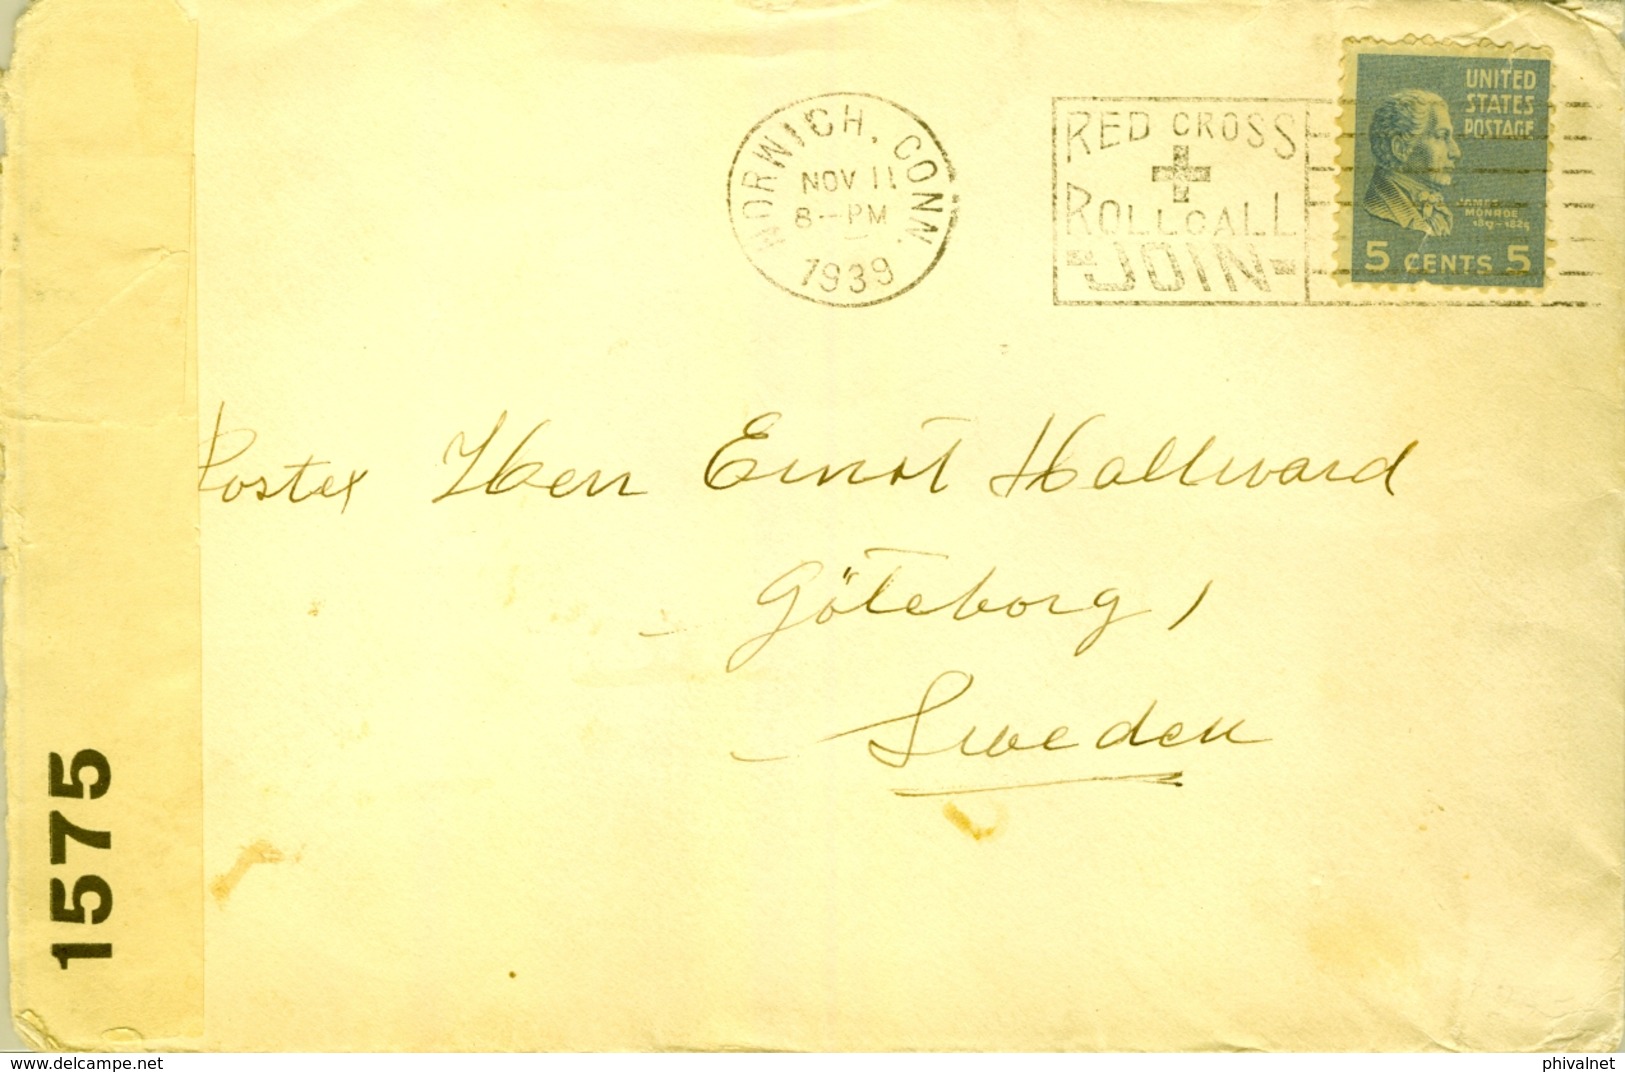 NORWICH, CONN.
NOV 11
8-PM
1939
RED CROSS
ROLL CALL
-JOIN-
UNITED
STATES
POSTAGE
JAMES
MONROE
1817-1825
5 CENTS 5
Herr Ernst Hallward
Göteborg,
Sweden
1575
www.delcampe.net
phivalnet